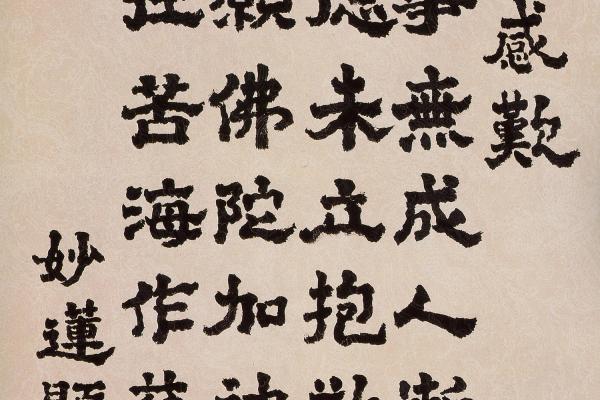 感歎
事無成人漸
未立抱
願佛陀加
苦海作
妙蓮題